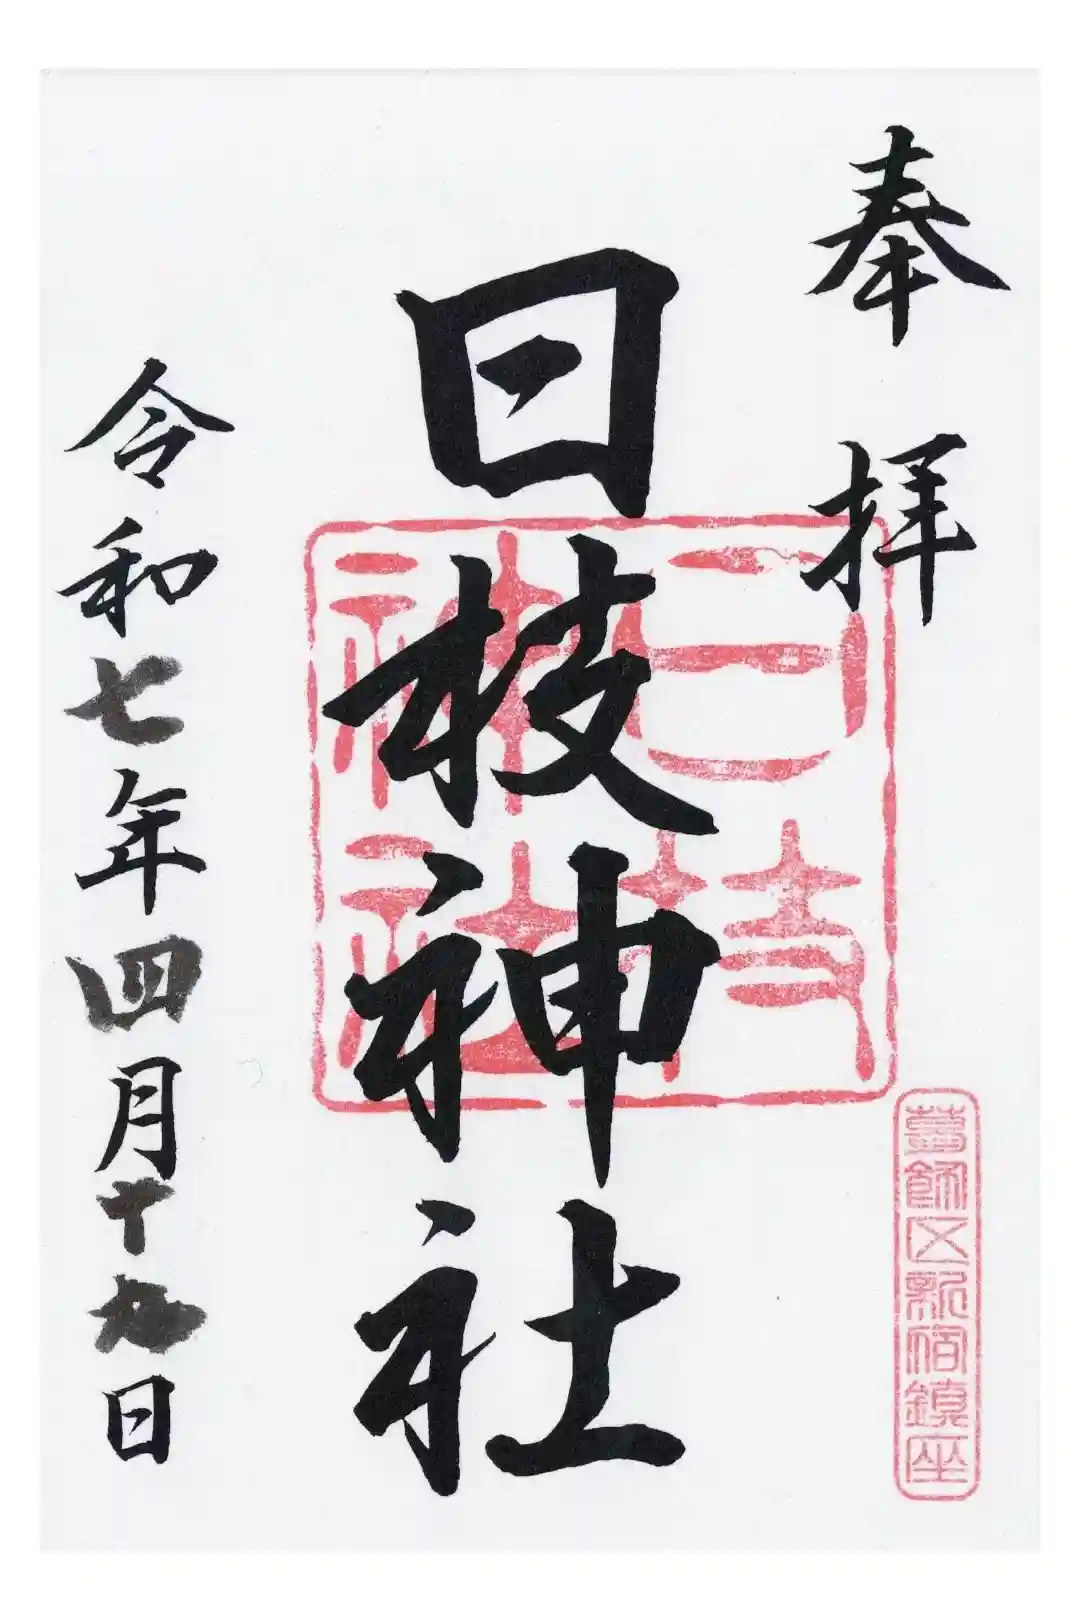 奉拝
日枝神社
日枝神社
葛飾区新宿鎮座
令和七年四月十九日